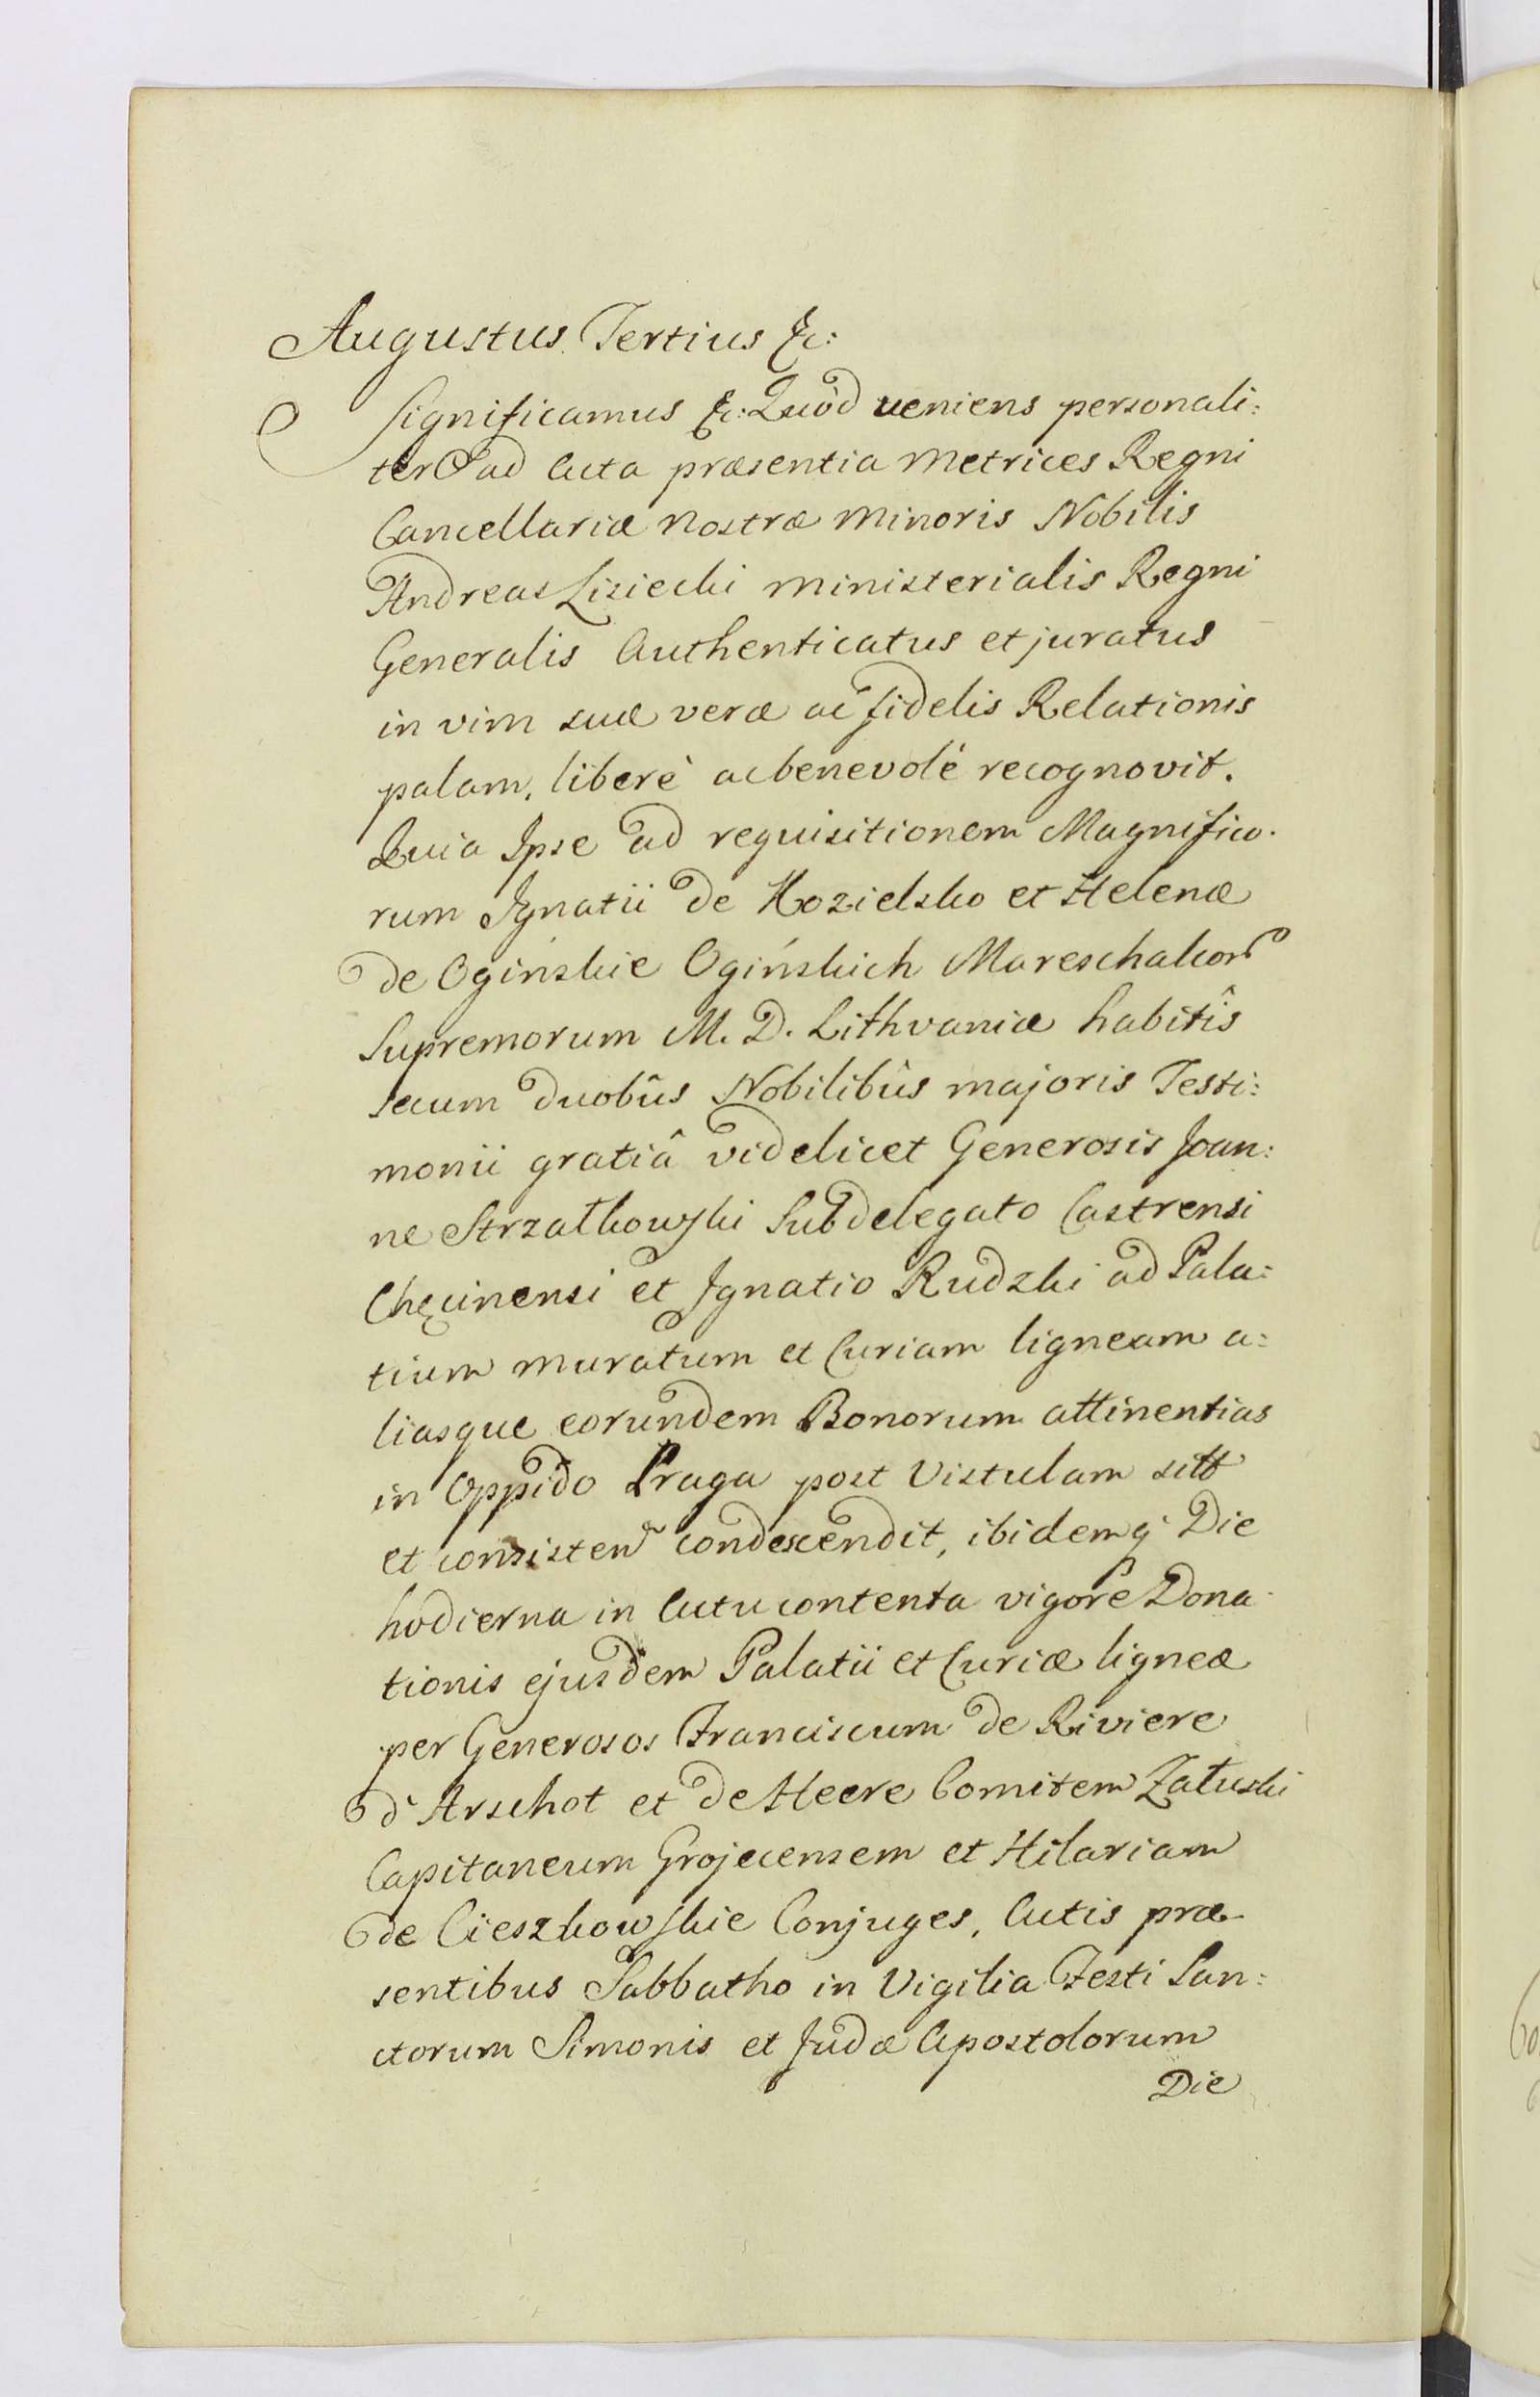 Augustus Tertius &c:
Significamus &c: Quòd veniens personali:
ter ad Acta præsentia Metrices Regni
Cancellariæ Nostræ Minoris Nobilis
Andreas Lisiecki Ministerialis Regni
Generalis Authenticatus et juratus
in vim suæ veræ ac fidelis Relationis
palam, liberè ac benevolè recognovit.
Quia Ipse ad requisitionem Magnifico.
rum Ignatii de Kozielsko et Helenæ
de Ogińskie Ogińskich Mareschalcor
Supremorum M. D. Lithvaniæ habitîs
secum duobûs Nobilibûs majoris Testi:
monii gratiâ videlicet Generosis Joan:
ne Strzałkowski Subdelegato Castrensi
Chęcinensi et Ignatio Rudzki ad Pala:
tium muratum et Curiam ligneam a:
liasque eorundem Bonorum attinentias
in Oppido Praga post Vistulam sitt
et consisten condescendit, ibidemq Die
hodierna in Actu contenta vigore Dona
tionis ejusdem Palatii et Curiæ ligneæ
per Generosos Franciscum de Riviere
d'Arschot et de Heere Comitem Załuski
Capitaneum Grojecensem et Hilariam
de Cieszkowskie Conjuges, Actis præ
sentibus Sabbatho in Vigilia Festi San:
ctorum Simonis et Judæ Apostolorum
Die